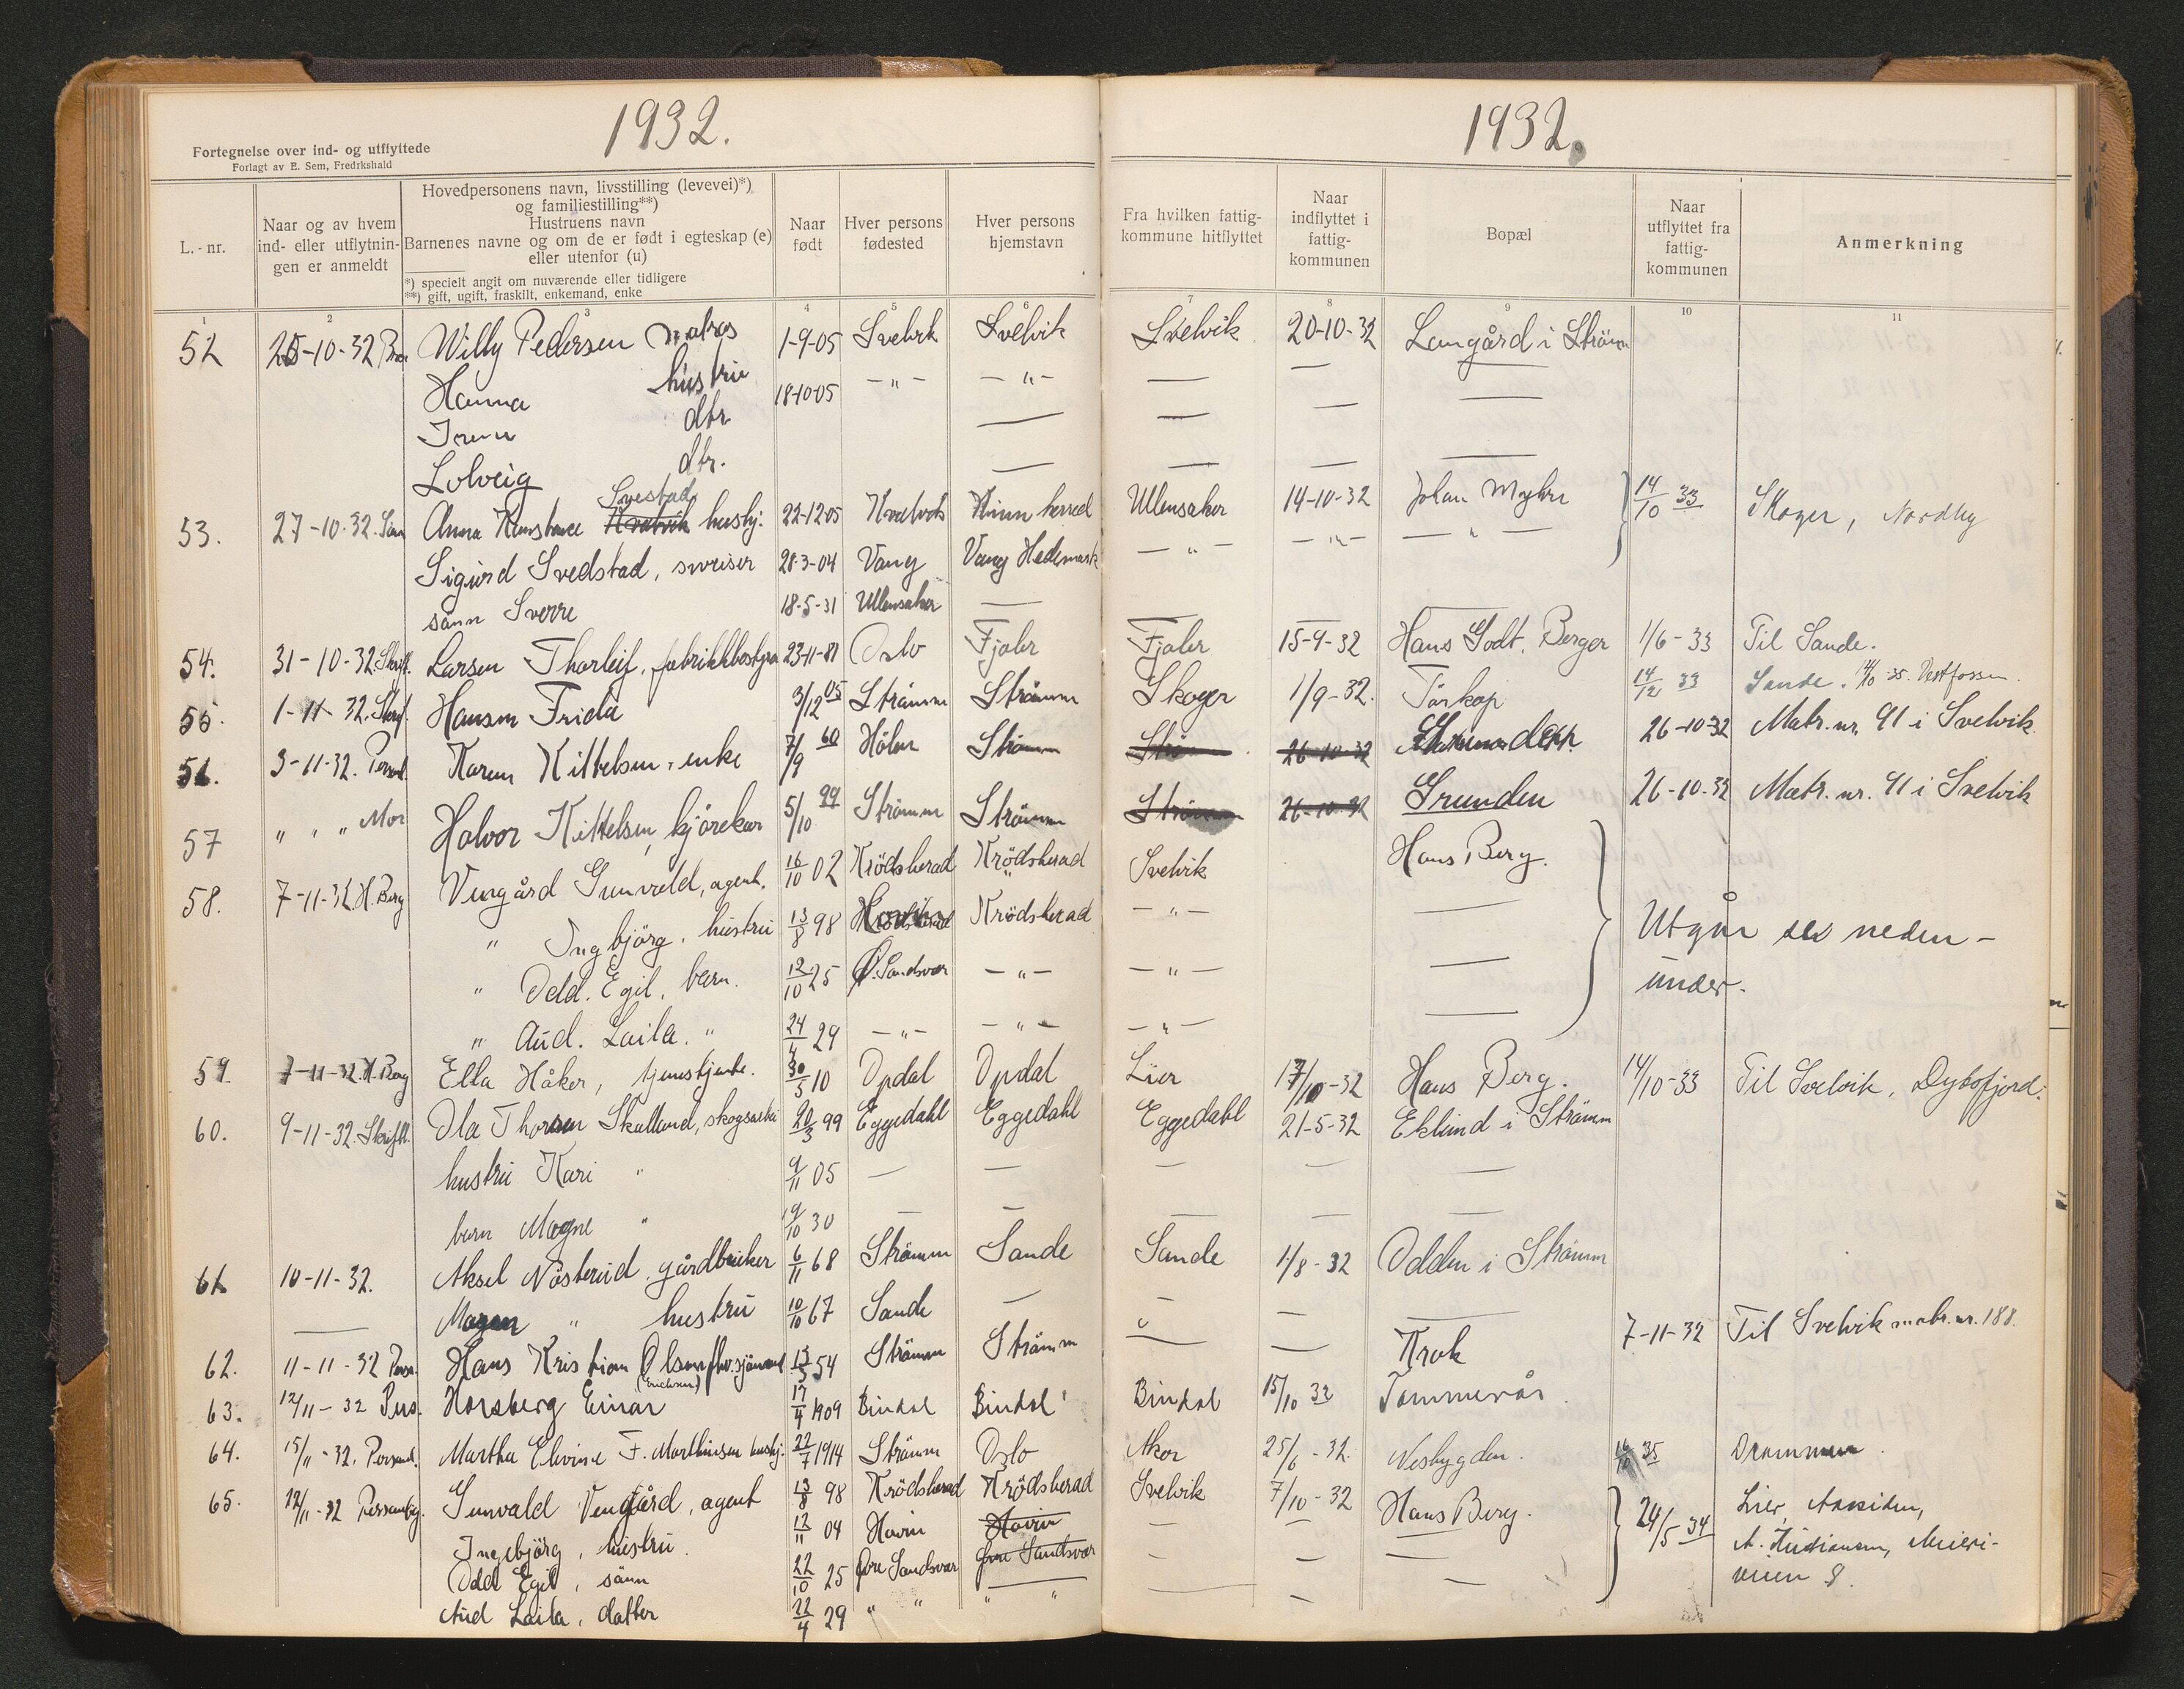 1932.
Fortegnelse over ind- og utflyttede
Forlagt av E. Sem, Fredrkshald
L.-nr.
Naar og av hvem ind- eller utflytnin- gen er anmeldt
Hovedpersonens navn, livsstilling (levevei)*) og familiestilling**)
Hustruens navn
Barnenes navne og om de er født i egteskap (e) eller utenfor (u)
*) specielt angit om nuværende eller tidligere
**) gift, ugift, fraskilt, enkemand, enke
Naar født
Hver persons fødested
Hver persons hjemstavn
1932.
Fra hvilken fattig- kommune hitflyttet
Naar indflyttet i fattig- kommunen
Bopæl
Naar utflyttet fra fattig- kommunen
Anmerkning
1 2 3 4 5 6 7 8 9 10 11
52 25-10-32 Willy Pedersen matros 1-9-05 Svelvik Svelvik Svelvik 20-10-32 Langård i Strömm
Hanna hustru 18-10-05 -"- -"- — — —
Irene dtr — — — —
Solveig dtr. — — — —
Svestad
53. 27-10-32. Anna Konstance Kvalvik hushj. 22-12-05 Kvalvik Kinn herred Ullensaker 14-10-32 Johan Myhre 14/10 33 Skoger, Nordby
Sigurd Svedstad, sveiser 28-3-04 Vang Vang Hedemark -"- -"- -"-
sönn Sverre 18-5-31 Ullensaker — — — —
54. 31-10-32 Skriftl. Larsen Thorleif, fabrikkbestyrer 23-11-81 Oslo Fjaler Fjaler 15-9-32 Hans Godt. Berger 1/6-33 Til Sande.
55. 1-11-32. Skrif. Hansen Frida 3/12 05 Strömm Strömm Skoger 1/9-32. Törkop 14/12 33 Sande. 14/10-35. Vestfossen.
56. 3-11-32. Personl. Karen Kittelsen, enke 7/9 60 Hölen Strömm Ström 26-10-32 26-10-32 Matr. nr. 91 i Svelvik.
57 " " " Mor Halvor Kittelsen, kjörekar 5/10 99 Strömm Strömm Strömm 26-10-32 Grunden 26-10-32 Matr. nr. 91 i Svelvik
58. 7-11-32. H. Berg Vengård Gunvald, agent. 16/10 02 Krödsherad Krödsherad Svelvik Hans Berg.
" Ingbjörg, hustru 13/8 98 Krödsherad -"- — Utgår se neden-
" Odd. Egil, barn. 12/10 25 Ø. Sandsvær -"- -"- — under.
" Aud. Laila. " 24/4 29 -"- -"- -"- —
59. 7-11-32. H. Berg Ella Håker, tjenestjente. 30/5 10 Opdal Opdal Lier 17/10-32 Hans Berg. 14/10-33 Til Svelvik, Dybofjord.
60. 9-11-32. Skriftl. Ola Thorsen Skalland, skogsarb. 20/3 99 Eggedahl Eggedahl Eggedahl 21-5-32 Eklund i Strömm
hustru Kari " 9/11 05 — — — — —
barn Magne " 9/10 30 — — — — —
61. 10-11-32. Aksel Nösterud, gårdbruker 6/11 68 Strömm Sande Sande 1/8-32 Odden i Strömm
— Maren " hustru 10/10 67 Sande — — — —
62. 11-11-32 Pers. Hans Kristian Olsen fhv. sjömand 13/3 54 Strömm Strömm — — Krok 7-11-32 Til Svelvik matr. nr. 188.
(Erichsen)
63. 12/11-32 Pers. Horsberg Einar 17/4 1909 Bindal Bindal Bindal 15/10 32 Tommerås
64. 15/11-32. Personl. Martha Elvine F. Marthinsen hushj. 22/7 1914 Strömm Oslo Aker 25/6-32. Nesbygden. 16/10 35 Drammen.
65. 22/11-32 Gunvald Vengård, agent 13/8 98 Krödsherad Krödsherad Svelvik 7/10-32 Hans Berg. 24/5 34 Lier, Aasiden,
Ingebjörg, hustru. 12/11 04 Hovin Hovin — — — A. Kristiansen,
Odd Egil, sönn 22/10 25 Øvre Sandsvær Øvre Sandsvær — — — veien 8.
Aud Laila, datter 22/4 29 " " " " — — —